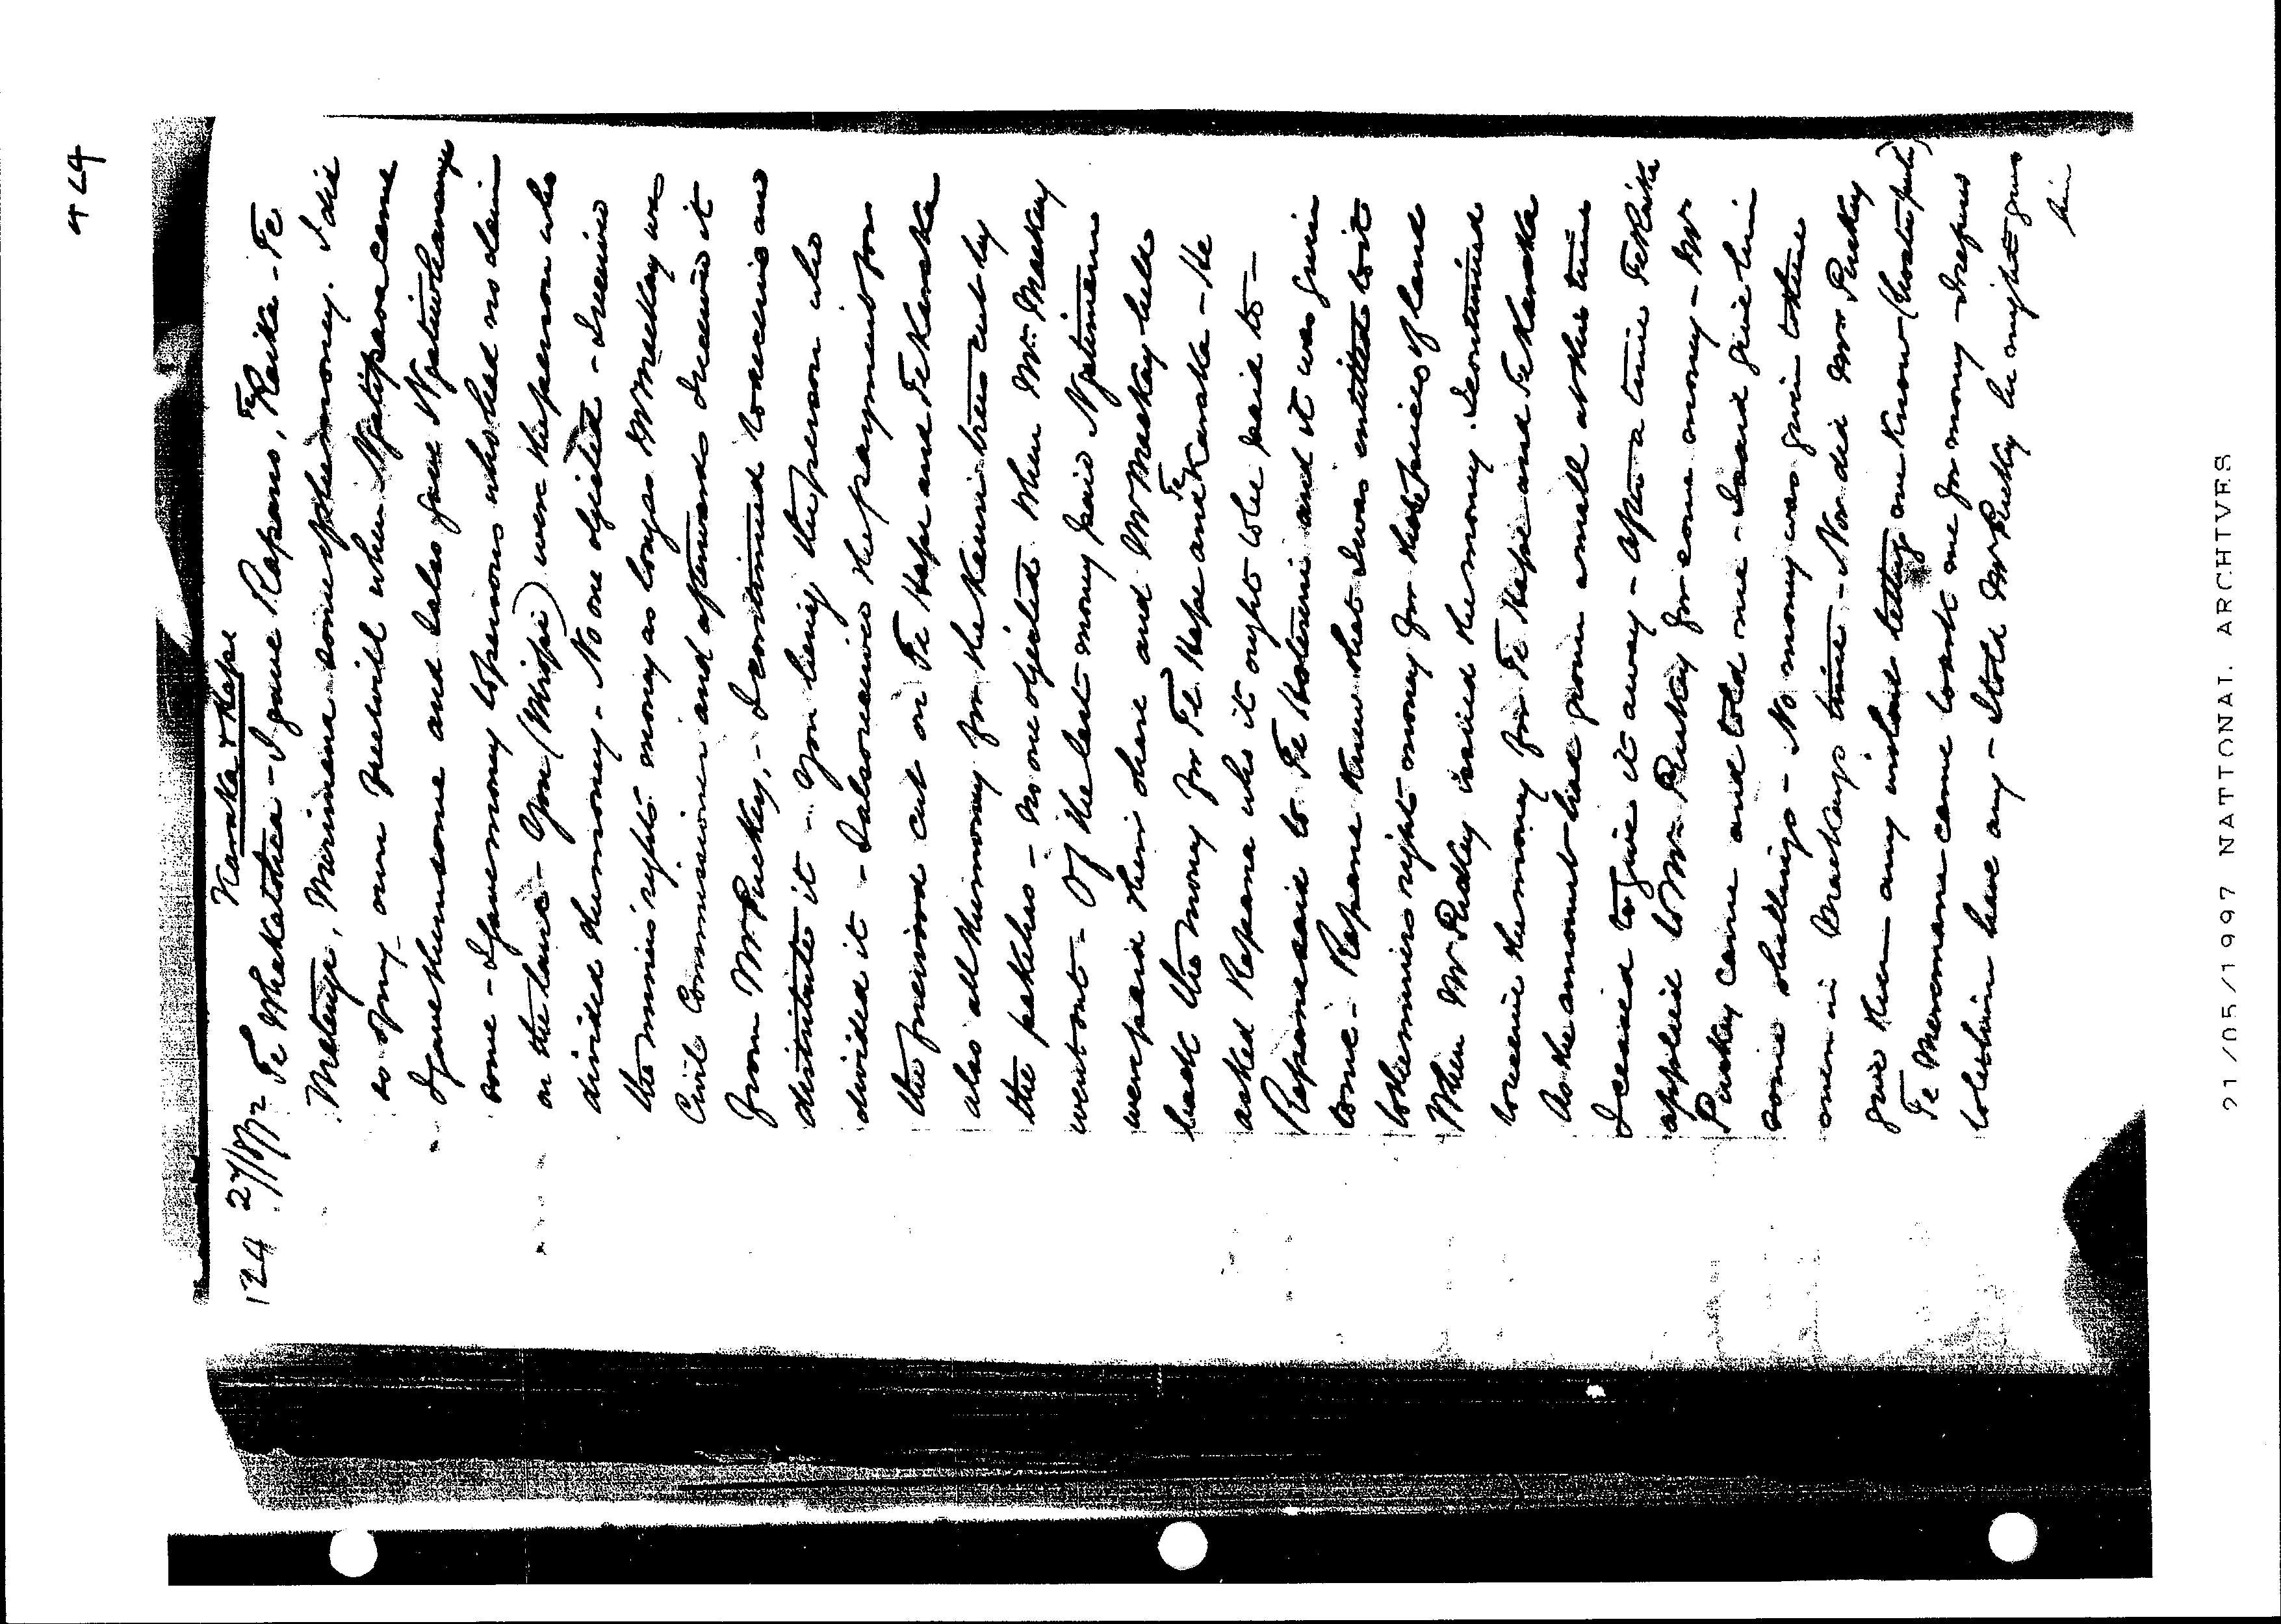 424
Kanaka & Hape
124 27/8/72 Te Whakatotea - I gave Repana, Te Raika - Te
Meremana some of the money. I did
so of my own freewill when Ngatipaoa came
I gave them some and I also gave Ngatiwhanaunga
some - I gave money to persons who had no claim
on the land - You were the person who
divided the money - No one objected - I received
the miners right money as long as Mr Mackay was
Civil Commissioner and afterwards I received it
from Mr Puckey, - I continued to receive and
distribute it - You being the person who
divided it - I also received the payment for
the firewood cut on Te Hape and Te Kanaka
also all the money for the Kauri trees cut by
the pakehas - no one objected when Mr. Mackay
went out - Of the last money paid
were paid their share and Mr Mackay held
back the money for Te Hape and Te Kanaka - He
asked Repana who it ought to be paid to -
Repana said to Te Hoterene and it was given
to me - Repana knew that I was entitled to it
to the miners right money for these pieces of land
When Mr Puckey issued the money. I continued
to receive the money for Te Hape and Te Kanaka
As the amount had grown small at this time
I ceased to give it away - After a time Te Raika
applied to Mr. Puckey for some money - Mr
Puckey came and told me - I said give him
some shillings - No money was given to them
even in Mackay's time - Nor did Mr Puckey
give them any without letting me know
Te Meremana came to ask me for money - I refused
to let him have any - I told Mr Puckey he might give
him
21/05/1997 NATIONAL ARCHIVES